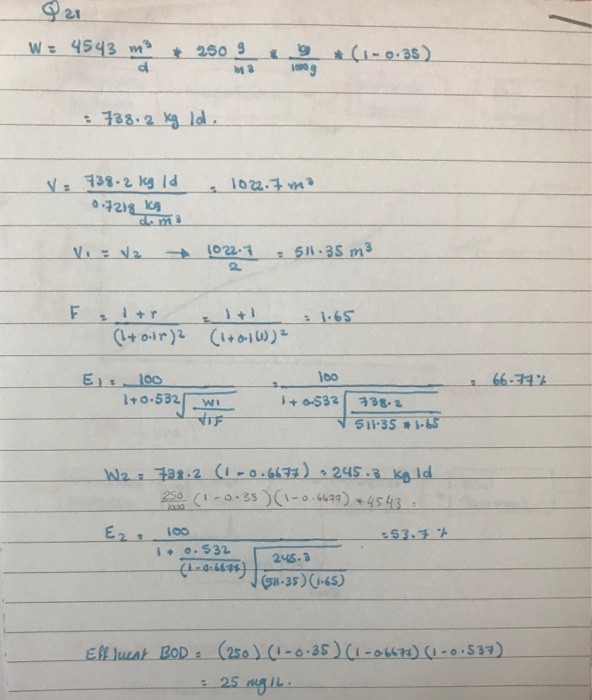 Q 21
W = 4543 m³/d * 250 g/m³ * kg/1000g * (1-0.35)
= 738.2 kg/d.
V = 738.2 kg/d / 0.7218 kg/d.m³ = 1022.7 m³
V1 = V2 → 1022.7/2 = 511.35 m³
F = 1+r/(1+0.1r)² = 1+1/(1+0.1(1))² = 1.65
E1 = 100/1+0.532√W1/V1F = 100/1+0.532√738.2/511.35*1.65 = 66.77%
W2 = 738.2 (1-0.6677) = 245.3 kg/d
250/1000 (1-0.35)(1-0.6677)*4543 =
E2 = 100/1+0.532/(1-0.6677)√245.3/(511.35)(1.65) = 53.7 %
Effluent BOD = (250)(1-0.35)(1-0.6677)(1-0.537)
= 25 mg/L.